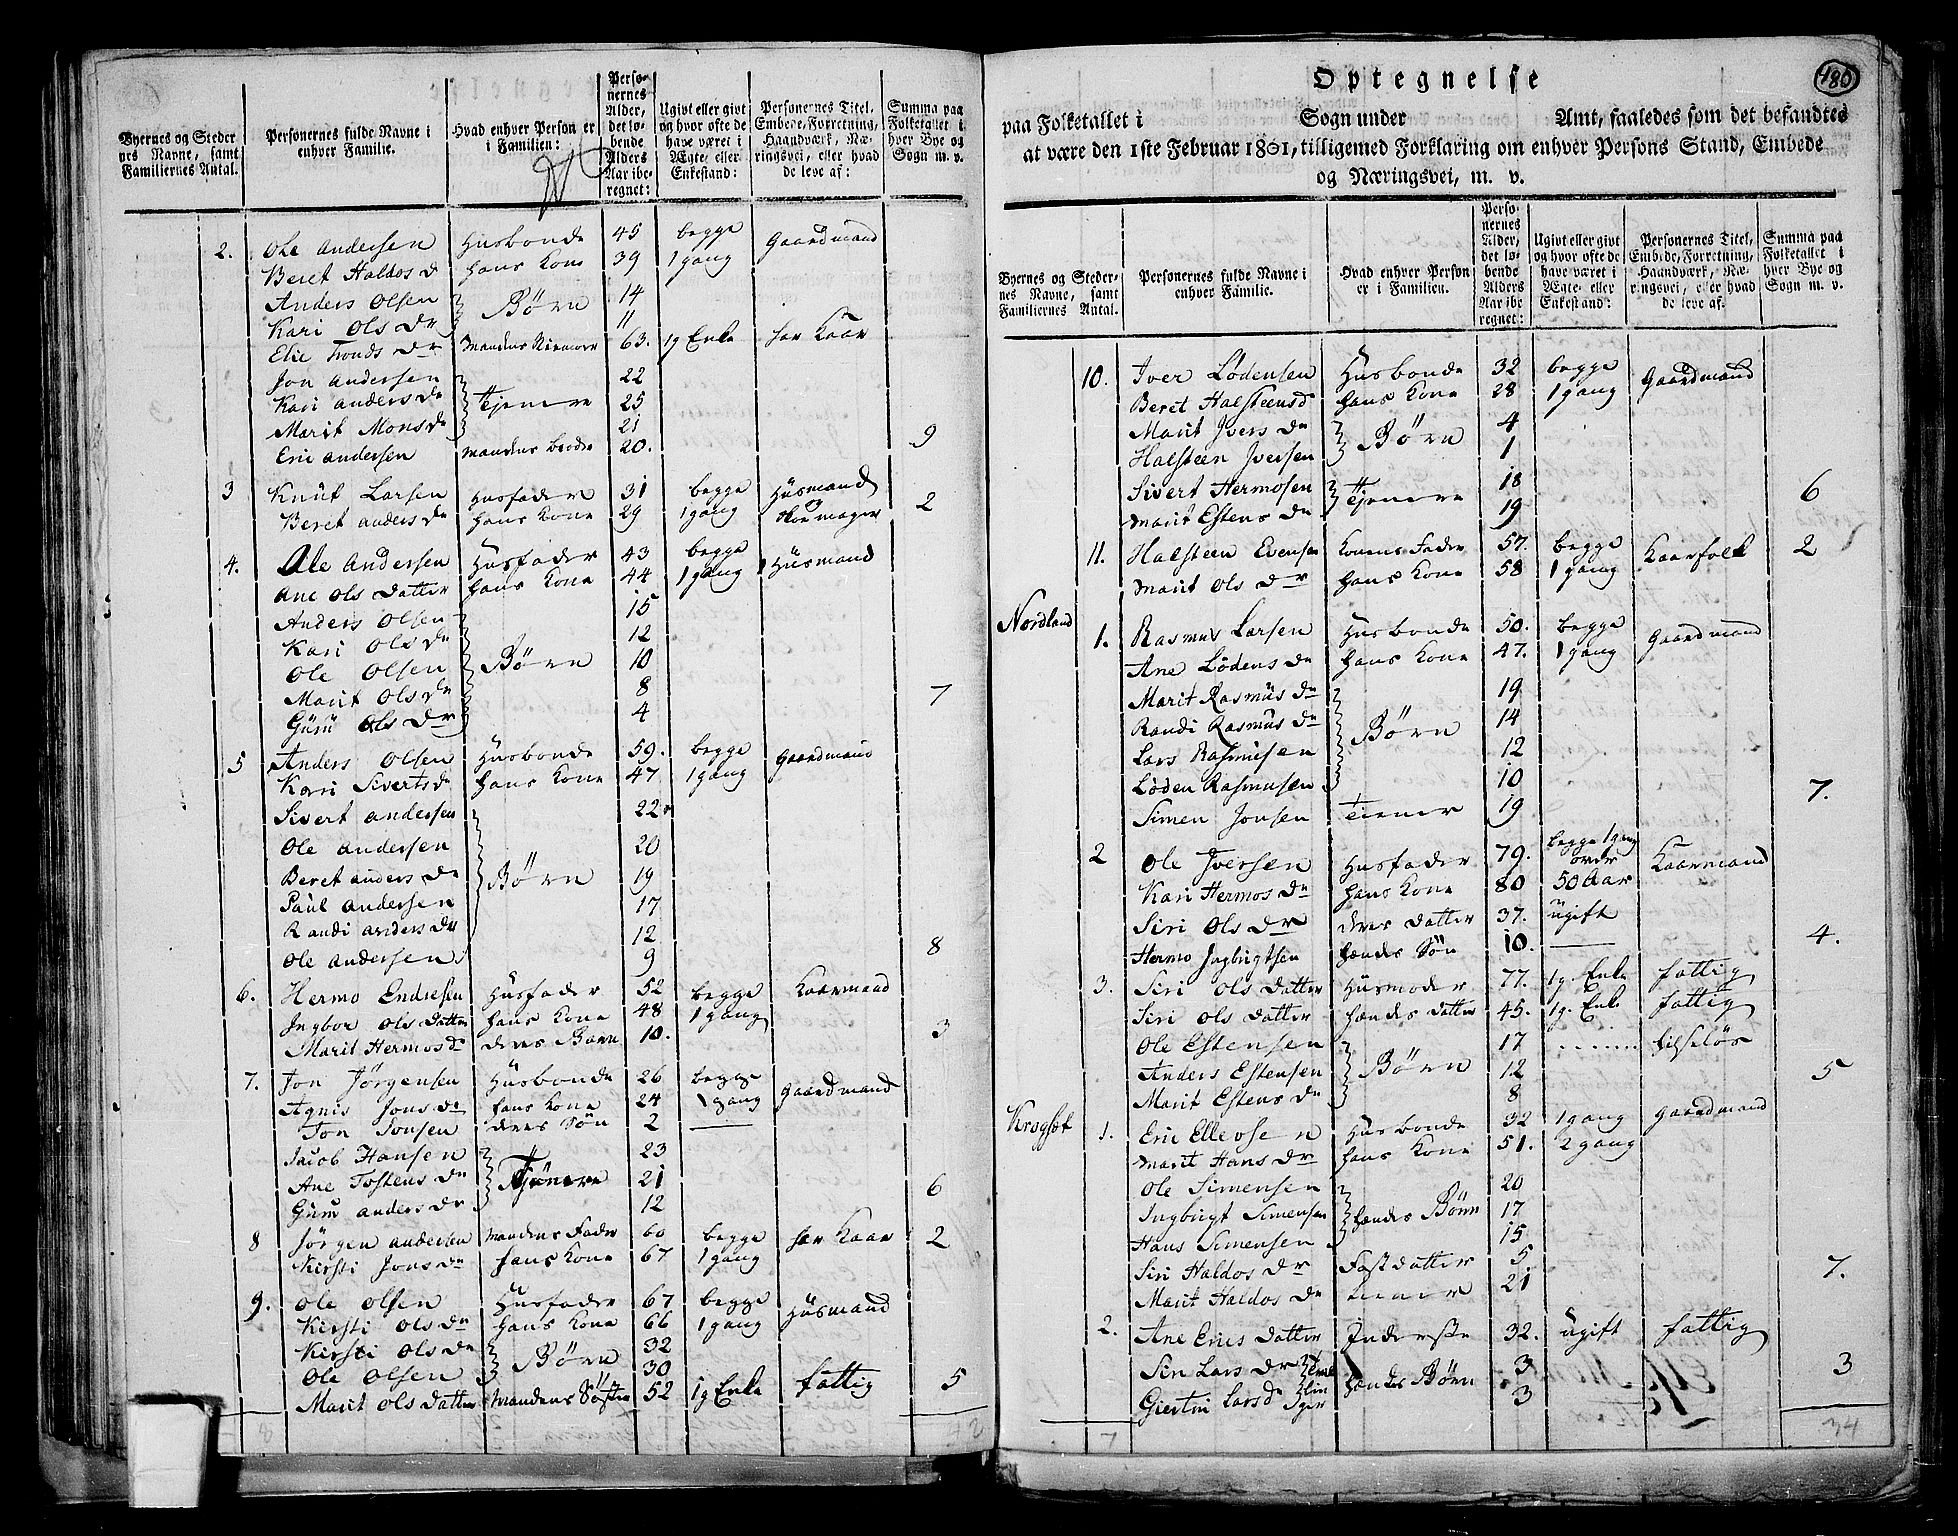 Byernes og Steder
nes Navne, samt
Familiernes Antal.
Personernes fulde Navne i
enhver Familie.
Hvad enhver Person er
i Familien:
Perso-
nernes
Alder,
det lø-
bende
Alders
Aar ibe-
regnet:
Ugivt eller givt
og hvor ofte de
have været i
Ægte- eller
Enkestand:
Personernes Titel,
Embede, Forretning,
Haandværk, Næ-
ringsvei, eller hvad
de leve af:
Summa paa
Folketallet i
hver Bye og
Sogn m. v.
2. Ole Andersen Husbonde 45 begge Gaardmand
Beret Haldos dr hans Kone 39 1 gang
Anders Olsen } Børn 14
Kari Ols dr 11
Elie Tronds dr Mandens Stemoer 63. 1g Enke har Kaar
Jon Andersen 22
Kari Anders dr } Tjenere 25
Marit Mons dr 21
Eric Andersen Mandens broder 20. 9
3 Knut Larsen Husfader 31 begge Husmand
Beret Anders dr hans Kone 29 1 gang Skomager 2
4. Ole Andersen Husfader 43 begge Husmand
Ane Ols Datter hans Kone 44 1 gang
Anders Olsen 15
Kari Ols dr 12
Ole Olsen } Børn 10
Marit Ols dr 8 7
Guru Ols dr 4
5 Anders Olsen Husbonde 59. begge Gaardmand
Kari Siverts dr hans Kone 47 1 gang
Sivert Andersen 22
Ole Andersen 20
Beret Anders dr } Børn 19
Paul Andersen 17
Randi Anders dr 12
Ole Andersen 9 8
6. Hermo Endresen Husfader 52 begge Kaarmand
Ingbor Ols Datter hans Kone 48 1 gang
Marit Hermos dr deres Barn 10. 3
7. Jon Jørgensen Husbonde 26 begge Gaardmand
Agnis Jons dr hans Kone 24 1 gang
Jon Jonsen deres Søn 2 —
Jacob Hansen 23
Ane Tostens dr } Tjenere 21
Guru Anders dr 12 6
8 Jørgen Andersen Mandens Fader 60 begge har Kaar 2
Kirsti Jons dr hans Kone 67 1 gang
9. Ole Olsen Husfader 67 begge Husmand
Kirsti Ols dr hans Kone 66 1 gang
Kirsti Ols dr } Børn 32
Ole Olsen 30
Marit Ols Datter Mandens Søster 52 1g Enke fattig 5
8 42
480
Optegnelse
paa Folketallet i Sogn under Amt, saaledes som det befandtes
at være den 1ste Februar 1801, tilligemed Forklaring om enhver Persons Stand, Embede
og Næringsvei, m. v.
Byernes og Steder-
nes Navne, samt
Familiernes Antal.
Personernes fulde Navne i
enhver Familie.
Hvad enhver Person
er i Familien.
Perso-
nernes
Alder,
det lø-
bende
Alders
Aar ibe
regnet:
Ugivt eller givt
og hvor ofte de
have været i
Ægte- eller
Enkestand:
Personernes Titel,
Embede, Forretning,
Haandværk, Næ-
ringsvei, eller hvad
de leve af.
Summa paa
Folketallet i
hver Bye og
Sogn m. v.
10. Iver Lødensen Husbonde 32 begge Gaardmand
Beret Halsteensd hans Kone 28 1 gang
Marit Ivers dr } Børn 4
Halsteen Iversen 1
Sivert Hermosen } Tjenere 18 6
Marit Estens dr 19
11. Halsteen Evensen Konens Fader 57. begge Kaarfolk 2
Marit Ols dr hans Kone 58 1 gang
Nordland 1. Rasmus Larsen Husbonde 50. begge Gaardmand
Ane Lødens dr hans Kone 47. 1 gang
Marit Rasmus dr 19
Randi Rasmus dr } Børn 14
Lars Rasmusen 12
Løden Rasmusen 10 7.
Simen Jonsen Tiener 19
2 Ole Iversen Husfader 79. begge 1 gang Kaarmand
over
Kari Hermos dr hans Kone 80 50 Aar
Siri Ols dr deres Datter 37. ugift
Hermo Ingbrigtsen hendes Søn 10. — 4.
3. Siri Ols Datter Husmoder 77. 1g. Enke fattig
Siri Ols Datter hendes Datter 45. 1g. Enke fattig
Ole Estensen 17 hilseløs
Anders Estensen } Børn 12 5
Marit Estens dr 8
Krogset 1. Eric Ellevsen Husbonde 32 1 gang Gaardmand
Marit Hans dr hans Kone 51. 2 gang
Ole Simensen 20
Ingbrigt Simensen } hendes Børn 17
Hans Simensen 15
Siri Haldos dr Fostdatter 5 7.
Marit Haldos dr tiener 21
2. Ane Erics Datter Inderste 32. ugift fattig
Siri Lars dr hendes Børn 3 3
Giertru Larsd 3
7 34